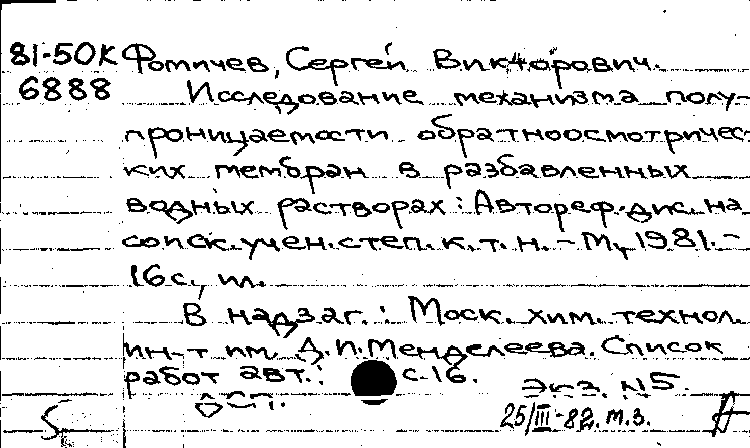 81-50К Фомичев, Сергей Викторович.
6888 Исследование механизма полу-
проницаемости обратноосмотричес-
ких мембран в разбавленных
водных растворах: Автореф. дис. на
соиск. учен. степ. к. т. н. - М, 1981. -
16 с., ил.
В надзаг.: Моск. хим. технол.
ин-т им. Д. И. Менделеева. Список
работ авт.: с. 16.
Экз. N5.
ДСП.
25/III-82. т. з.